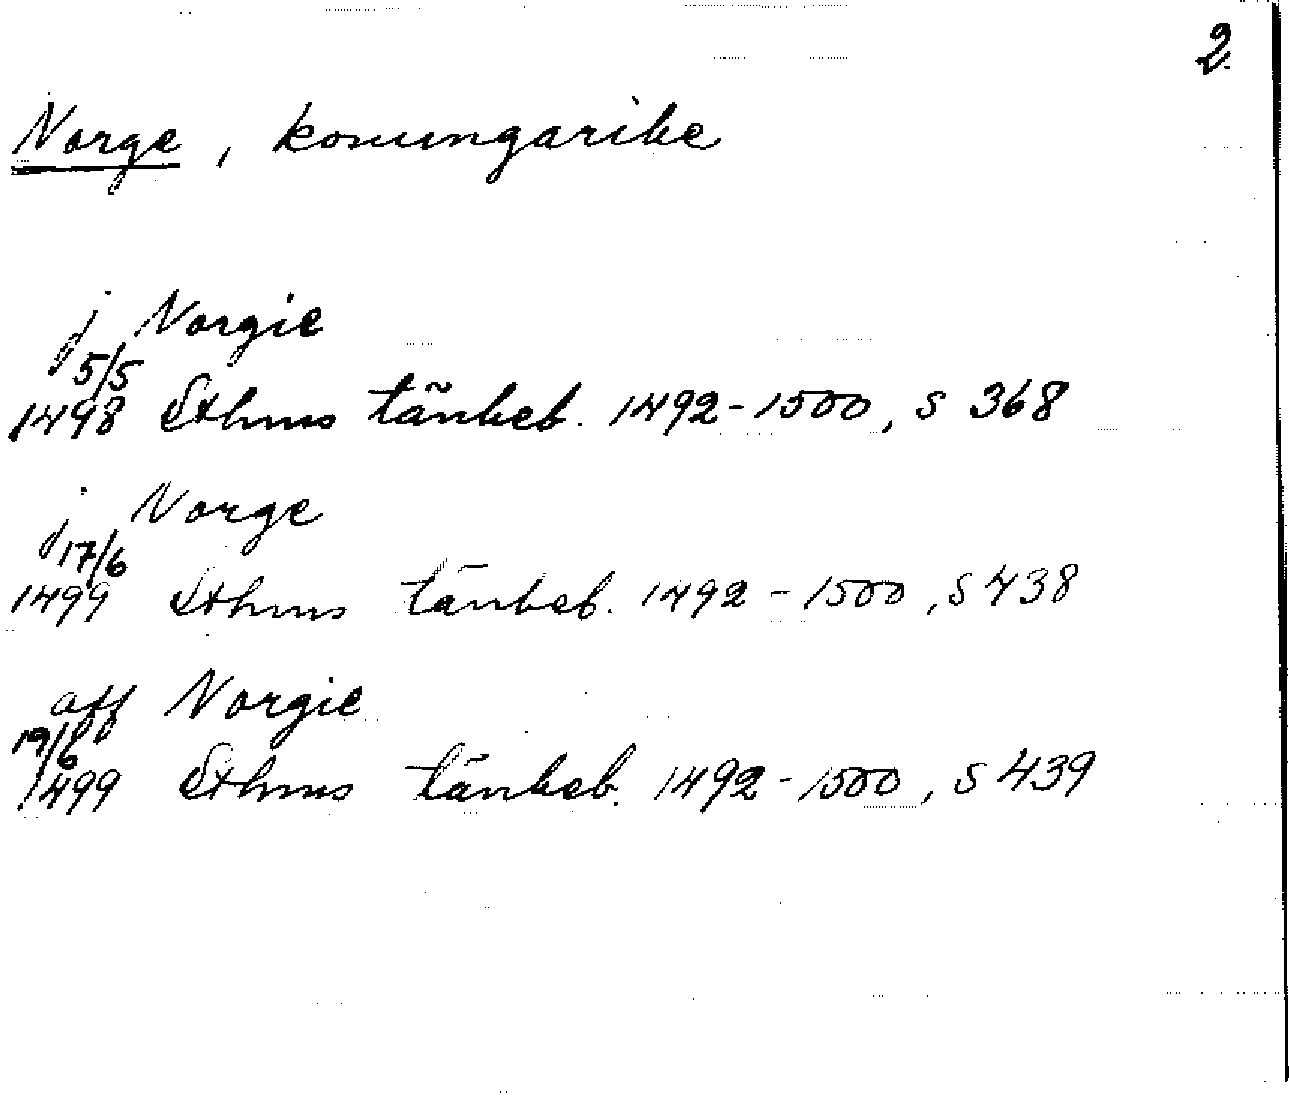 2
Norge, konungarike
j Norgie
5/5
1498 Sthms tänkeb. 1492-1500, s 368
j Norge
17/6
1499 Sthms tänkeb. 1492-1500, s 438
aff Norgie
19/6
1499 Sthms tänkeb. 1492-1500, s 439